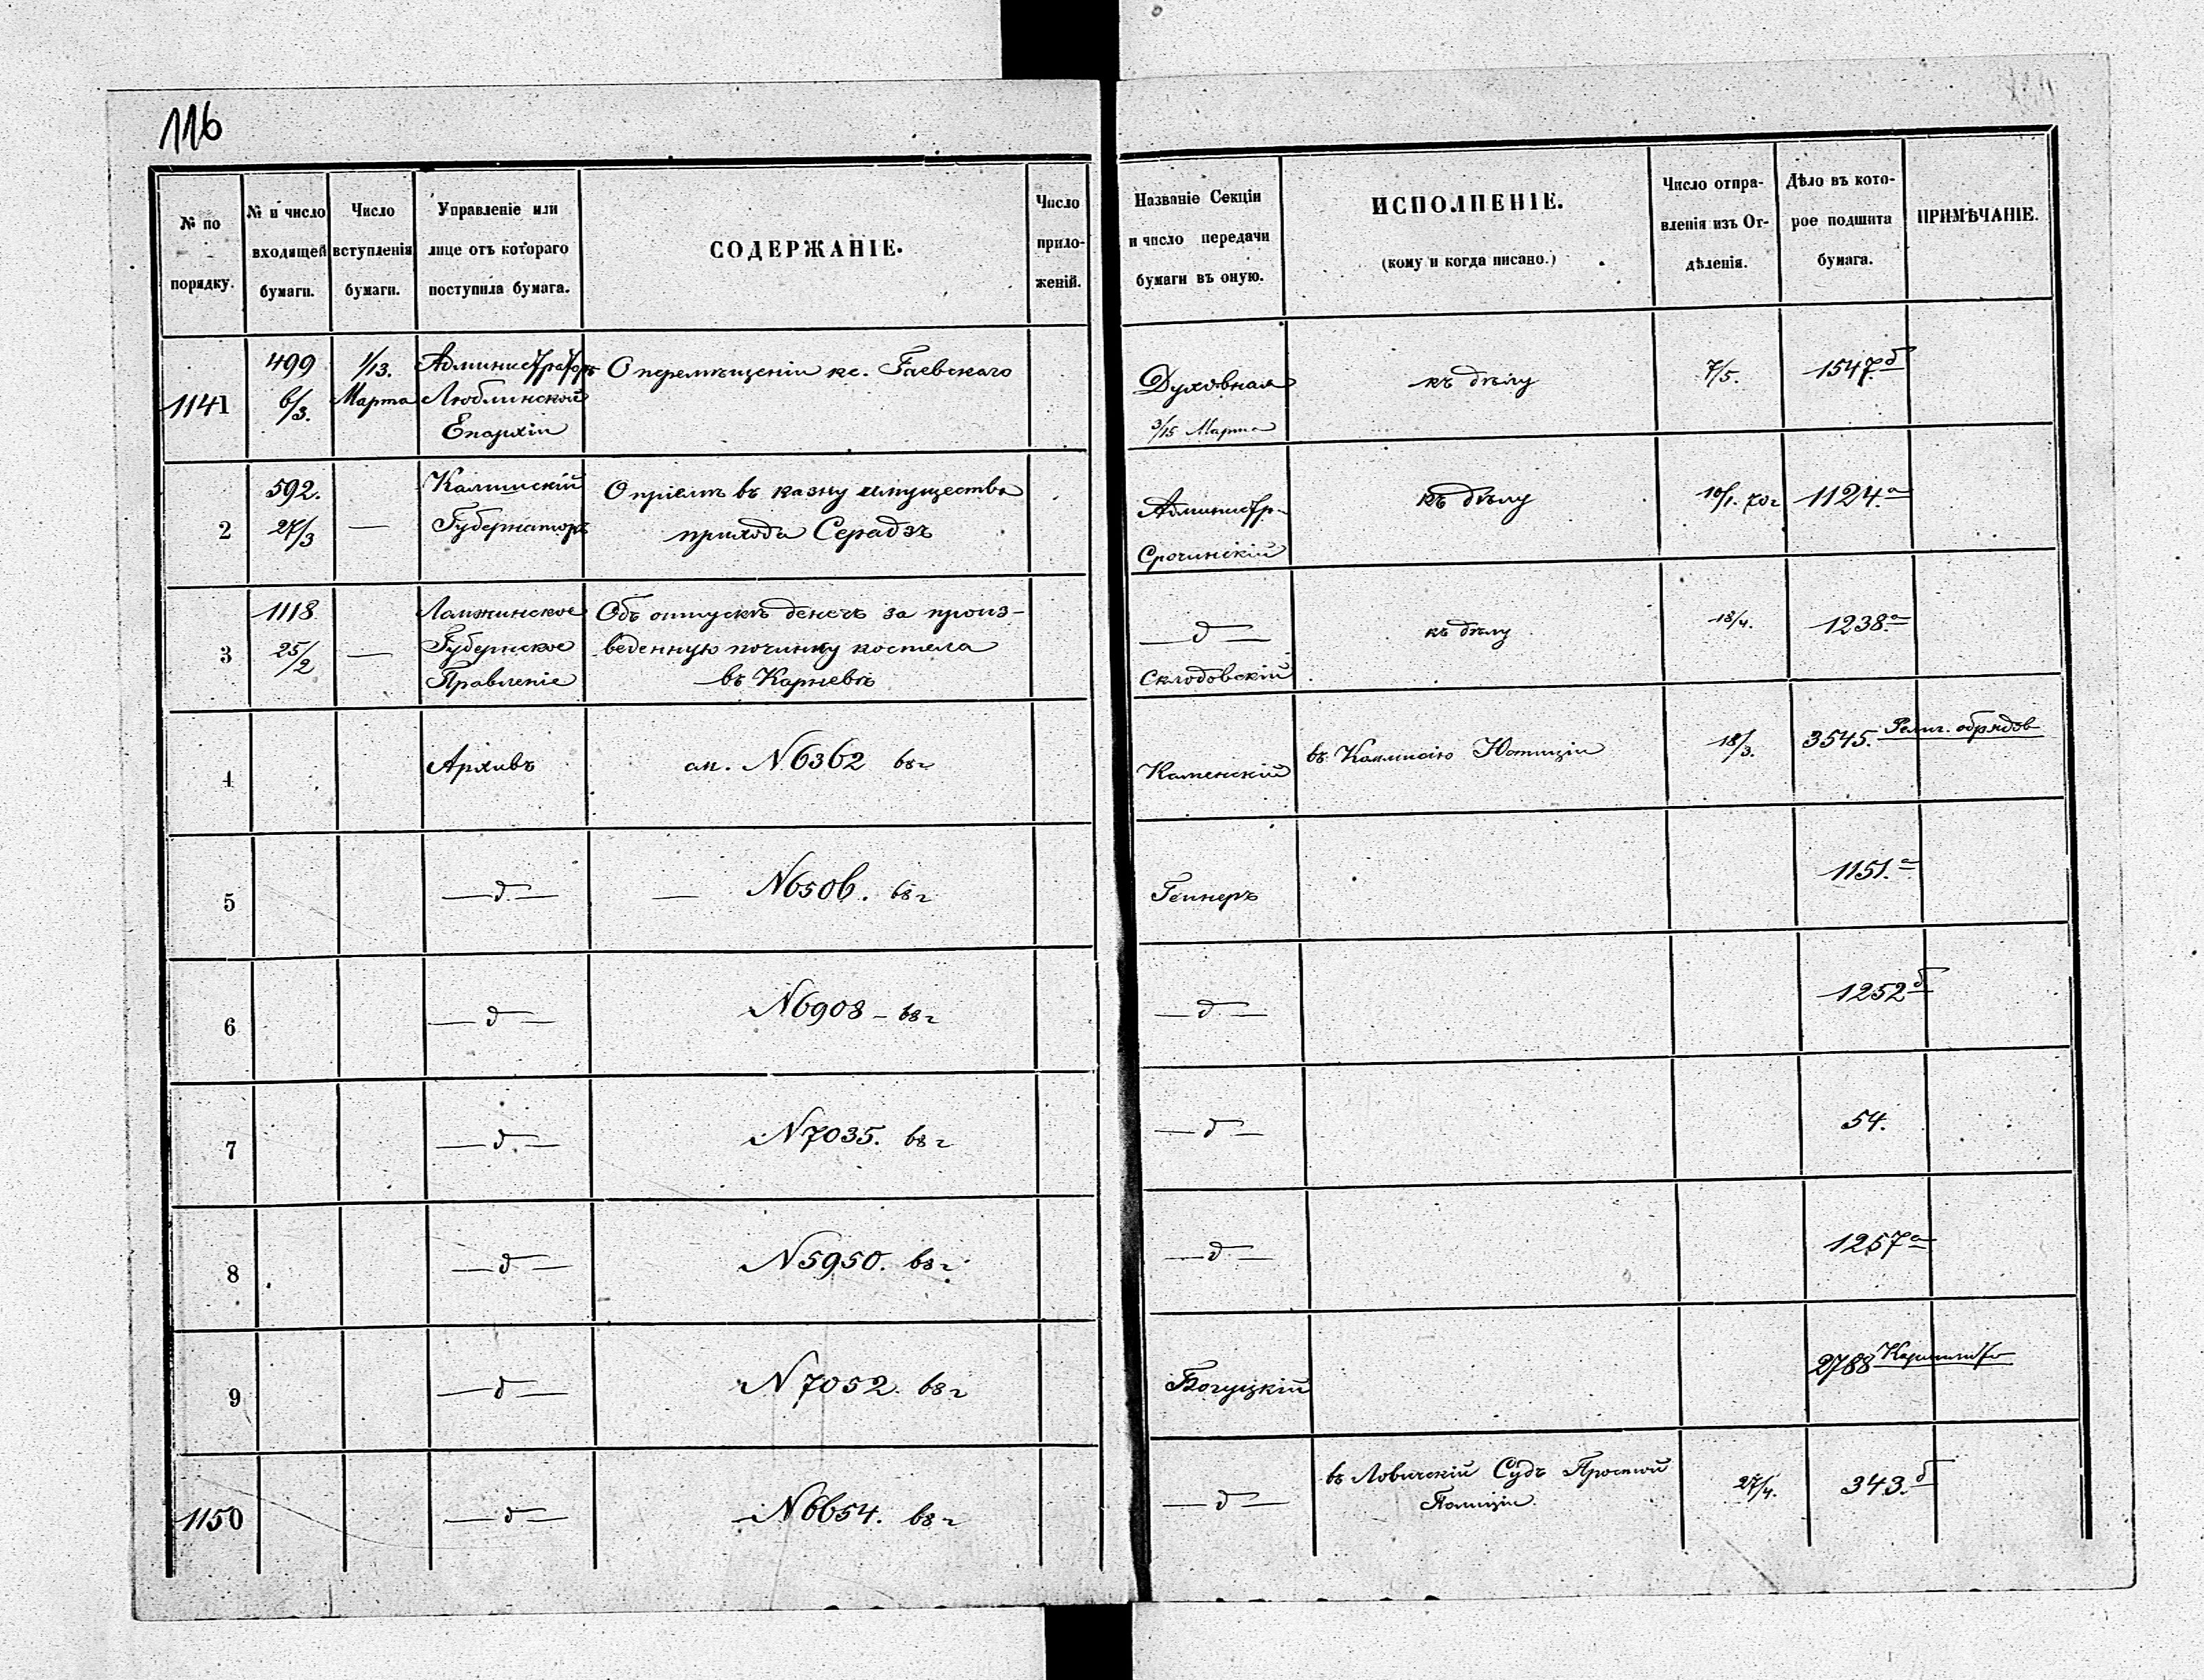 116
№ по порядку.
№ и число входящей бумаги.
Число вступленія бумаги.
Управленіе или лице отъ котораго поступила бумага.
СОДЕРЖАНІЕ.
Число прило-женій.
Названіе Секціи и число передачи бумаги въ оную.
ИСПОЛНЕНІЕ.
(кому и когда писано.)
Число отпра-вленія изъ От-дѣленія.
Дѣло въ кото-рое подшита бумага.
ПРИМѢЧАНІЕ.
1141
499
6/3.
1/13.
Марта
Администраторъ
Люблинской
Епархіи
О перемѣщеніи кс. Гаевскаго
Духовная
3/15 Марта
къ дѣлу
7/5.
1547.б
2
592.
27/3
—
Калишскій
Губернаторъ
О пріемѣ въ казну имущества
прихода Серадзъ
Администр.
Срочинскій
къ дѣлу
10/1. 70 г
1124.а
3
1118
25/2
—
Ломжинское
Губернское
Правленіе
Объ отпускѣ денегъ за произ-
веденную починку костела
въ Карневѣ
— д —
Склодовскій
къ дѣлу
18/4.
1238.а
4
Архивъ
см. N 6362 68 г
Каменскій
въ Коммисію Юстиціи
18/3.
3545. Религ. обрядов
5
— д —
— N 6506. 68 г
Геннеръ
1151.а
6
— д —
N 6908 – 68 г
— д —
1252 б
7
— д —
N 7035. 68 г
— д —
54.
8
— д —
N 5950. 68 г
— д —
1257 а
9
— д —
N 7052. 68 г
Богуцкій
2788
1150
— д —
N 6654. 68 г
— д —
въ Ловичскій Судъ Простой
Полиціи
27/4.
343. б